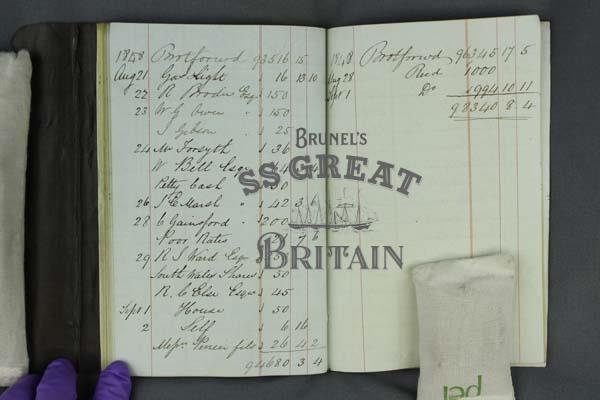 1848 Brotforwd 93516 15
Aug 21 Gas Light 16 13 10
22 R Brodie Esqr 150
23 W G Owen " 150
J Gibson " 25
24 Mr Forsyth 36
W Bell Esqr
Petty Cash
26 J E Marsh " 42 3
28 C Gainsford " 200
Poor Rates 7 6
29 R J Ward Esqr
South Wales 50
R. C Else Esqr 45
Sept 1 House 50
2 Self 6 16
Messrs fils 26 4 2
94680 3 4
1848 Brotforwd 96345 17 5
Aug 28 Recd 1000
Sept 1 Do 1994 10 11
98340 8 4
BRUNEL'S
SS GREAT
BRITAIN
pel